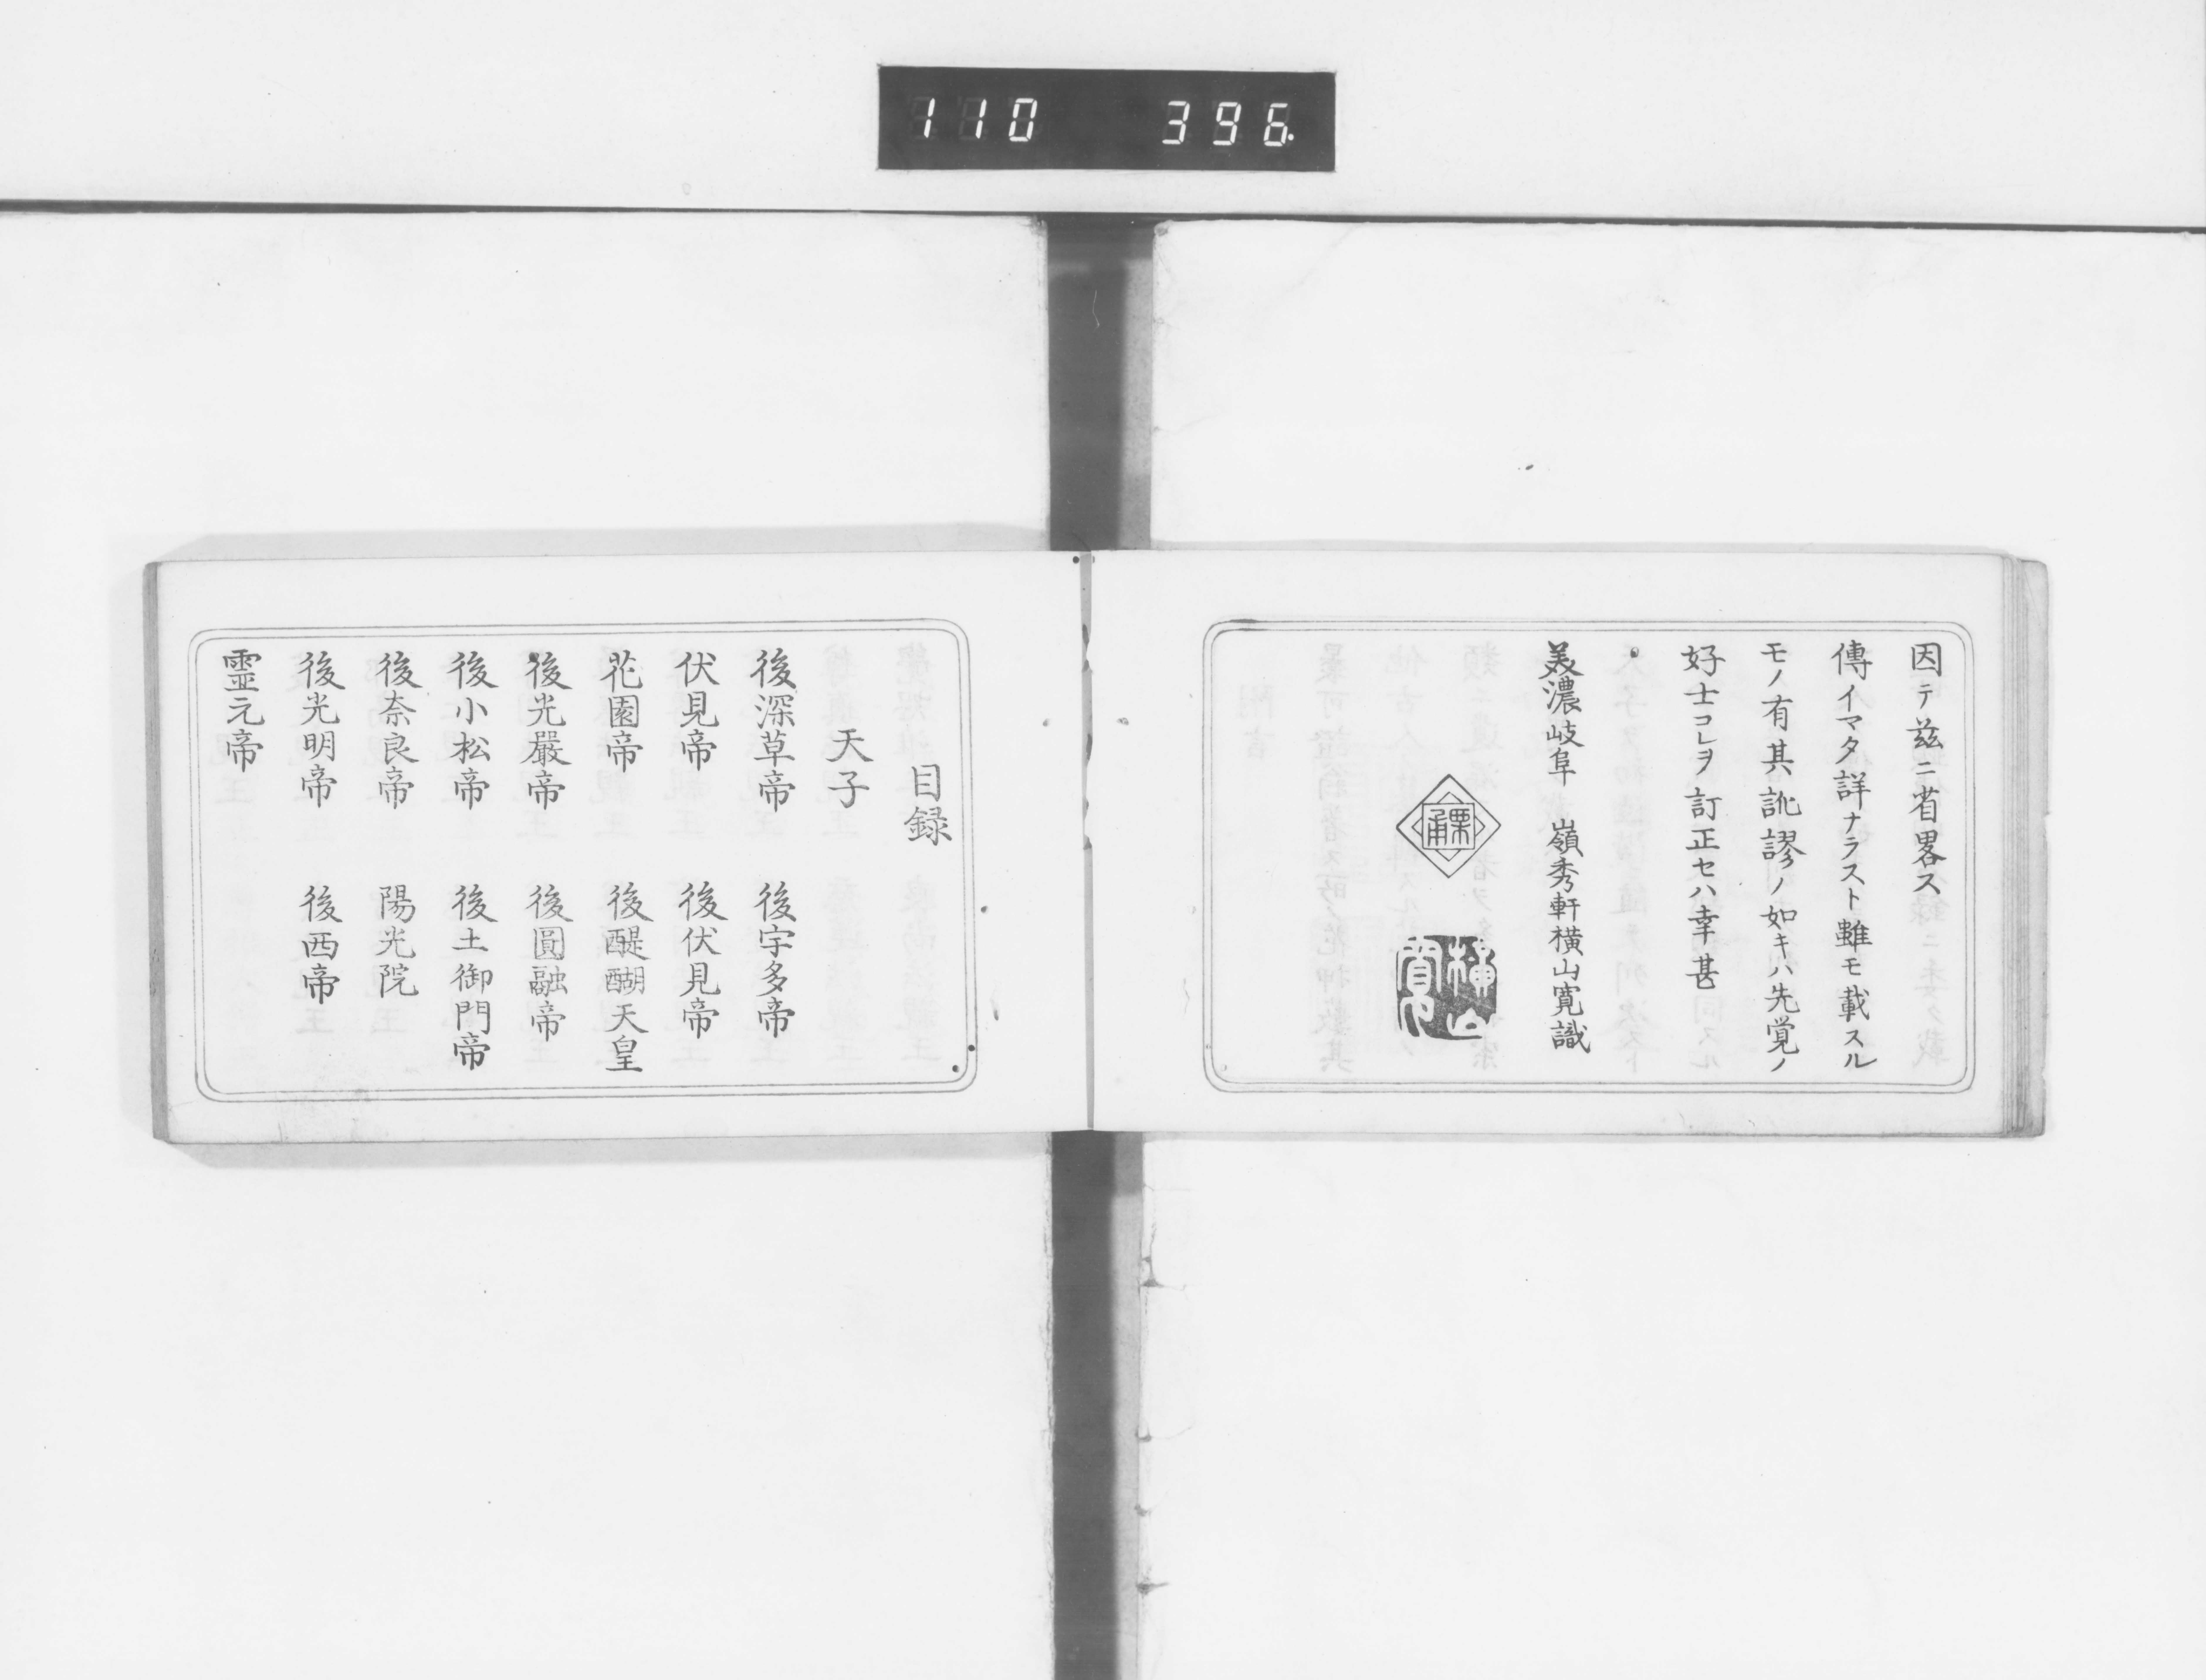 110 396.
因テ茲ニ省畧ス
傳イマタ詳ナラスト雖モ載スル
モノ有其訛謬ノ如キハ先覚ノ
好士コレヲ訂正セハ幸甚
美濃岐阜 嶺秀軒横山寛識
横山
寛
目録
天子
後深草帝 後宇多帝
伏見帝 後伏見帝
花園帝 後醍醐天皇
後光嚴帝 後圓融帝
後小松帝 後土御門帝
後奈良帝 陽光院
後光明帝 後西帝
靈元帝